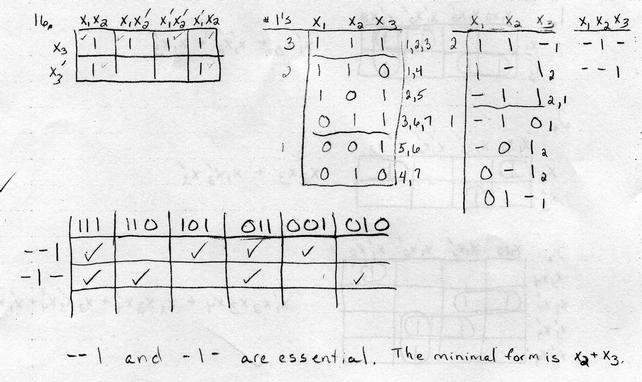 16. x₁x₂ x₁x₂′ x₁′x₂′ x₁′x₂
x₃ 1 1 1 1
x₃′ 1 1
# 1's x₁ x₂ x₃
3 1 1 1 1,2,3
2 1 1 0 1,4
1 0 1 2,5
0 1 1 3,6,7
1 0 0 1 5,6
0 1 0 4,7
x₁ x₂ x₃
2 1 1 - 1
1 - 1 2
- 1 1 2,1
1 - 1 0 1
- 0 1 2
0 - 1 2
0 1 - 1
x₁ x₂ x₃
- 1 -
- - 1
111 110 101 011 001 010
--1 ✓ ✓ ✓ ✓
-1- ✓ ✓ ✓ ✓
--1 and -1- are essential. The minimal form is x₂ + x₃.